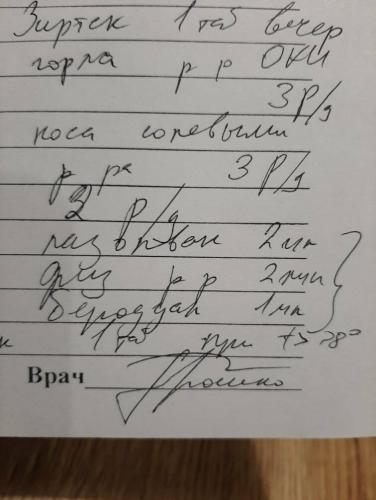 Зиртек 1 таб вечер
горла р р ОКИ
3 Р/д
носа солевыми
р ра 3 Р/д
2 Р/д
лазолван 2 мл
физ р р 2 мл
беродуал 1 мл
1 таб при t > 38°
Врач